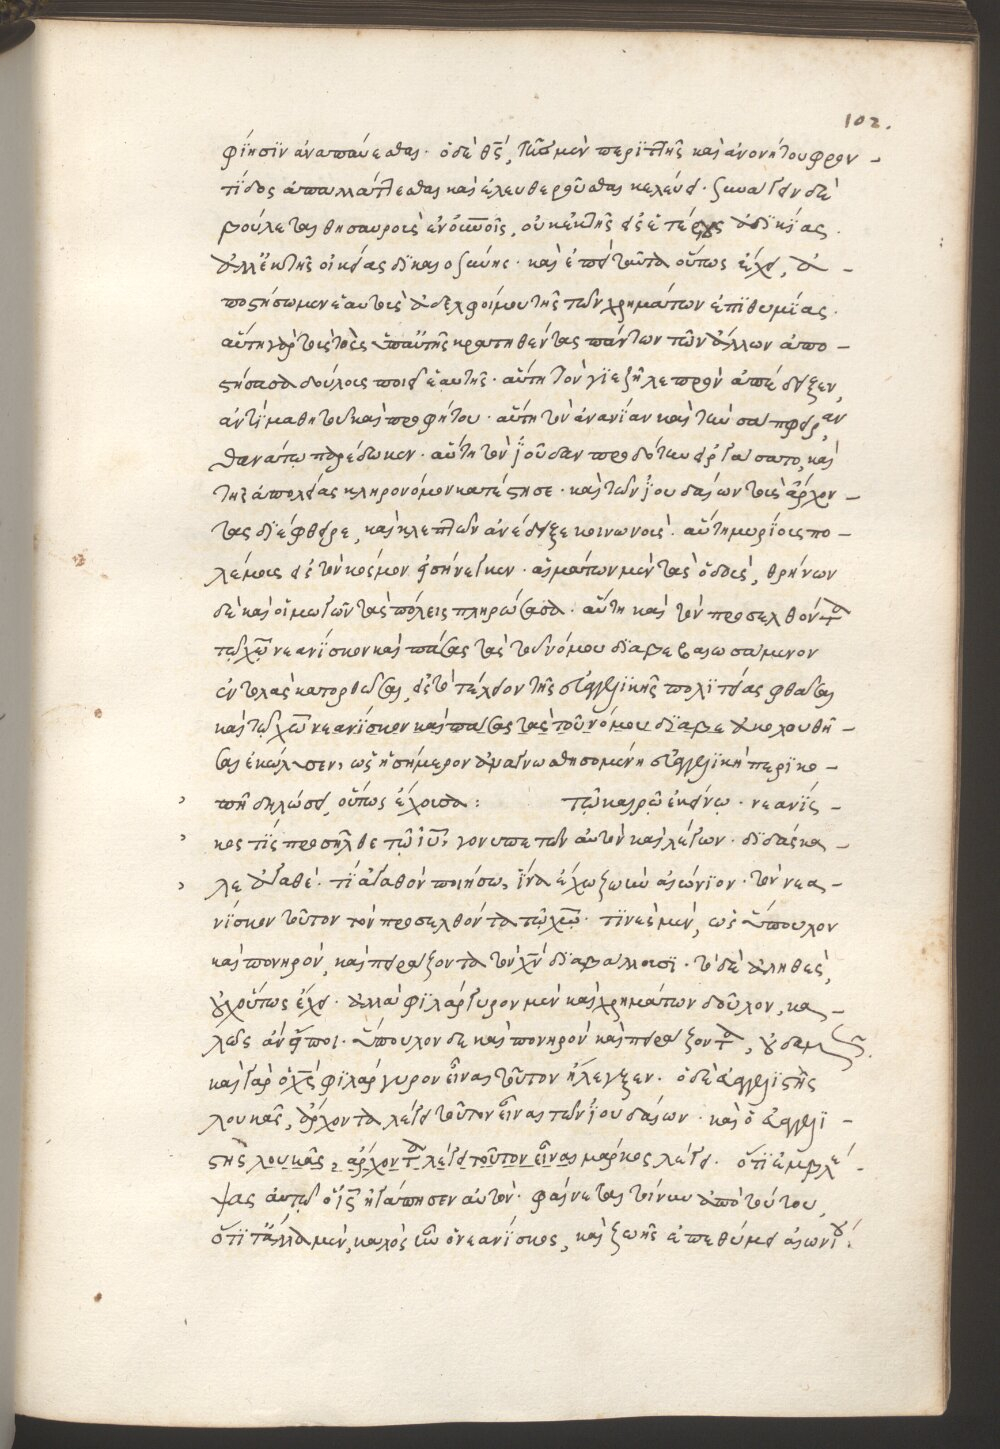 102.
φίησϊν ἀναπαύεσθαι. ὁ δὲ θς̅, τῶν μὲν περϊττῆς καὶ ἀνονήτου φρον-
τίδος ἀπαλλάττεσθαι καὶ ἐλευθεροῦσθαι κελεύει.
βούλεται θησαυροὺς ἐν οὐνοῖς, οὐκ ἐκ τῆς εἰς ἑτέρους ἀδϊκίας.
ἀλλ' ἐκ τῆς οἰκείας δϊκαιοσύνης. καὶ ἐπεὶ ταῦτα οὕτως ἔχει, ἀ-
ποστήσωμεν ἑαυτοὺς ἀδελφοί μου τῆς τῶν χρημάτων ἐπϊθυμίας.
αὕτη γὰρ τοὺς ὑπ' αὐτῆς κρατηθέντας πάντων τῶν ἄλλων ἀπο-
στήσασα δούλους ποιεῖ ἑαυτῆς. αὕτη τὸν γϊεζῆ λεπρὸν ἀπέδειξεν,
ἀντὶ μαθητοῦ καὶ προφήτου. αὕτη τὸν ἀνανίαν καὶ τὴν σαπφείραν
θανάτω παρέδωκεν. αὕτη τὸν ἰούδαν προδότην εἰργάσατο, καὶ
τῆς ἀπωλείας κληρονόμον κατέστησε. καὶ τῶν ἰουδαίων τοὺς ἄρχον-
τας δϊέφθειρε, καὶ κλεπτῶν ἀνέδειξε κοινωνούς. αὕτη μυρίοις πο-
λέμοις εἰς τὸν κόσμον εἰσήνεγκεν. αἱμάτων μὲν τὰς ὁδοὺς, θρήνων
δὲ καὶ οἰμωγῶν τὰς πόλεις πληρώσασα. αὕτη καὶ τὸν προσελθόντα
τῷ χῶ̅ νεανίσκον καὶ πάσας τὰς τοῦ νόμου δϊαβεβαιωσάμενον
ἐντολὰς κατορθῶσαι, εἰς τὸ τέλειον τῆς εὐαγγελϊκῆς πολϊτείας φθάσαι
καὶ τῷ χῶ̅ νεανίσκον καὶ πάσας τὰς τοῦ νόμου δϊαβε ἀκολουθῆ-
σαι ἐκώλυσεν, ὡς ἡ σήμερον ἀναγνωσθησομένη εὐαγγελϊκὴ περϊκο-
πὴ δηλώσει, οὕτως ἔχουσα: Τῷ καιρῷ ἐκείνῳ. νεανίς-
κος τὶς προσῆλθε τῷ ἰυ̅, γονυπετῶν αὐτὸν καὶ λέγων. δϊδάσκα-
λε ἀγαθέ. τί ἀγαθὸν ποιήσω, ἵνα ἔχω ζωὴν αἰώνϊον. τὸν νεα-
νίσκον τοῦτον τὸν προσελθόντα τῷ χῶ̅. τϊνὲς μὲν, ὡς ὕπουλον
καὶ πονηρὸν, καὶ πειράζοντα τὸν χν̅ δϊαβάλλουσϊ. τὸ δὲ ἀληθὲς,
οὐχ οὕτως ἔχει. ἀλλὰ φϊλάργυρον μὲν καὶ χρημάτων δοῦλον, κα-
λῶς ἂν εἴποι. ὕπουλον δὲ καὶ πονηρὸν καὶ πειράζοντα, οὐδαμῶς.
καὶ γὰρ ὁ χς̅ φϊλάργυρον εἶναι τοῦτον ἤλεγξεν. ὁ δὲ εὐαγγελϊστὴς
λουκᾶς, ἄρχοντα λέγει τοῦτον εἶναι τῶν ἰουδαίων. καὶ ὁ εὐαγγελϊ-
στὴς λουκᾶς, ἄρχοντα λέγει τοῦτον εἶναι μάρκος λέγει. ὅτϊ ἐμβλέ-
ψας αὐτῷ ὁ ἰς̅ ἠγάπησεν αὐτόν. φαίνεται τοίνυν ἀπὸ τούτου,
ὅτϊ τἄλλα μὲν, καλὸς ἦν ὁ νεανίσκος, καὶ ζωῆς ἐπεθύμει αἰωνίου.